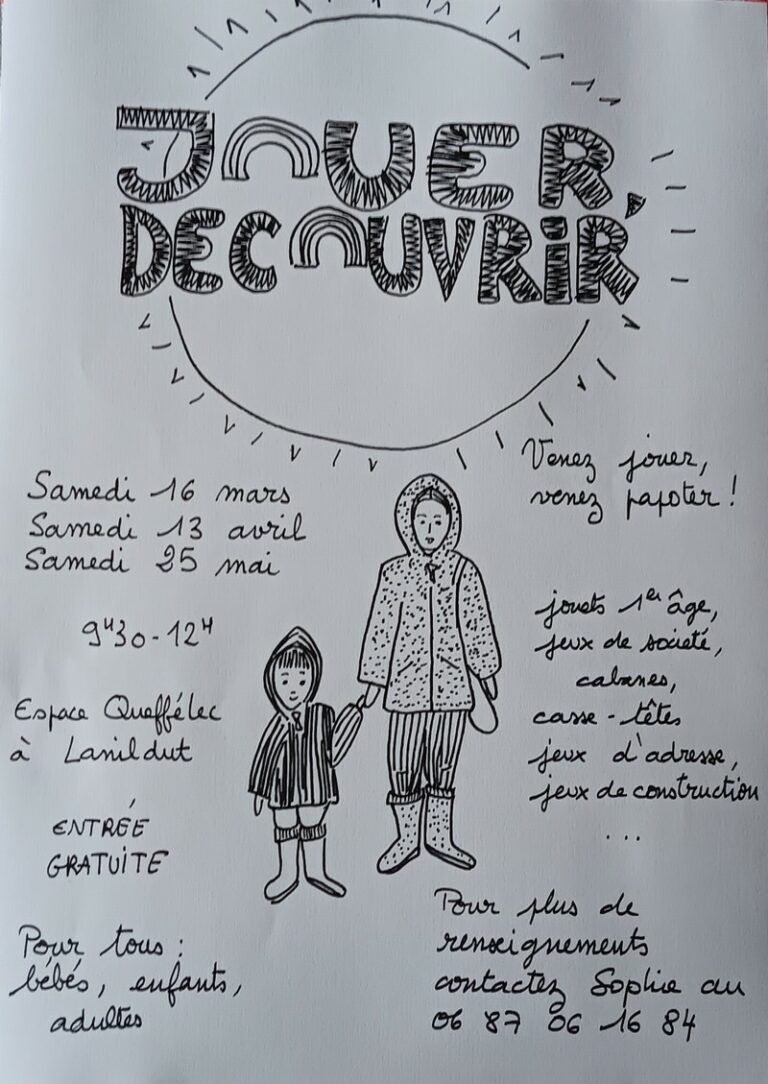 JOUER,
DECOUVRIR
Samedi 16 mars
Samedi 13 avril
Samedi 25 mai
9H30-12H
Espace Queffélec
à Lanildut
ENTRÉE
GRATUITE
Pour tous :
bébés, enfants,
adultes
Venez jouer,
venez papoter !
jouets 1er âge,
jeux de société,
cabanes,
casse-têtes
jeux d'adresse,
jeux de construction
...
Pour plus de
renseignements
contactez Sophie au
06 87 06 16 84